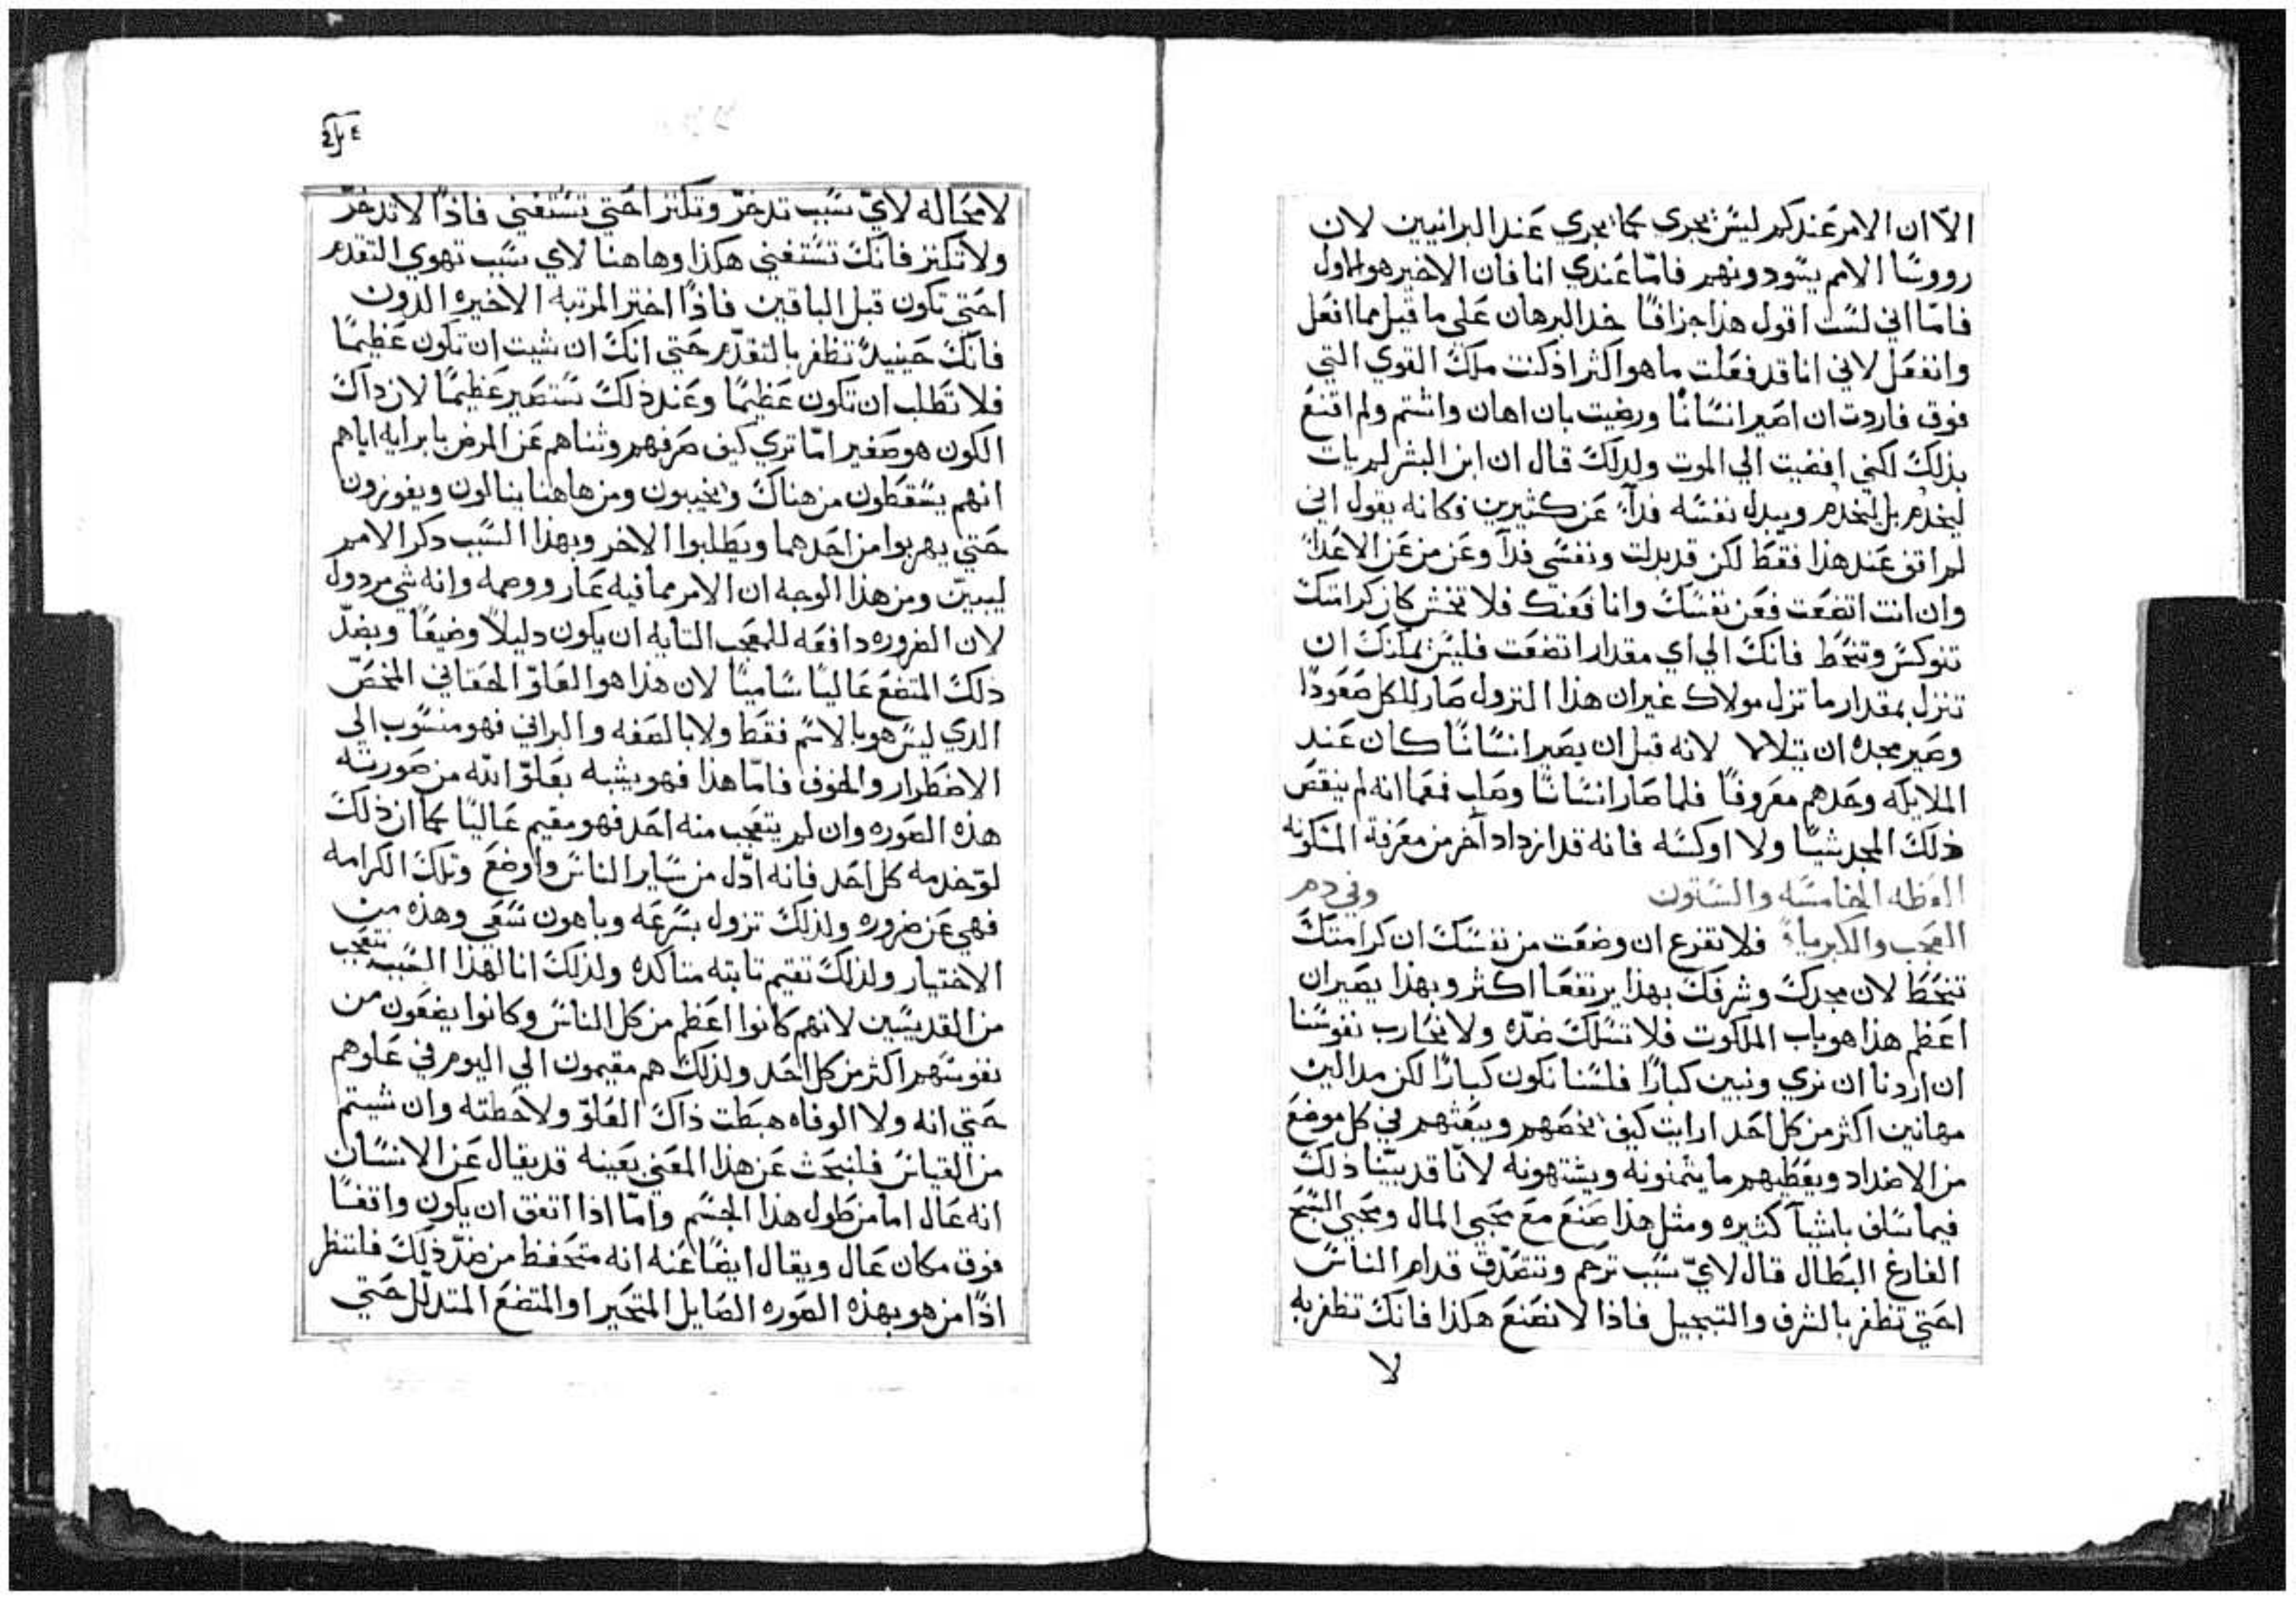 الّا ان الامر عندكم ليس يجرى كما يجري عند البرانيين لان
رووسا الامم يسودونهم فامّا عندي انا فان الاخير هو الاول
فامّا اني لست اقول هذا جزافًا خد البرهان علي ما قيل مما افعل
وانفعل لاني انا قد فعلت ما هو اكثر اذ كنت ملك القوي التي
فوق فاردت ان اصير انسانًا ورضيت بان اهان واشتم ولم اقنع
بذلك لكني افضيت الي الموت ولدلك قال ان ابن البشر لم يات
ليخدم بل ليخدم ويبدل نفسه فدآء عن كثيرين فكانه يقول اني
لم اقف عند هذا فقط لكن قد بدلت ونفسي فدآ وعن من عن الاعدآ
وان انت اتضعت فعن نفسك وانا فعنك فلا تخش كان كرامتك
تنوكس وتنحط فانك الي اي مقدار اتضعت فليس يمكنك ان
تنزل بمقدار ما نزل مولاك غير ان هذا النزول صار للكل صعودًا
وصير مجده ان يتلالا لانه قبل ان يصير انسانًا كان عند
الملايكه وحدهم معروفًا فلما صار انسانًا وصلب فمعما انه لم ينقص
ذلك المجد شيًا ولا اوكسه فانه قد ازداد آخر من معرفة المسكونه
العظه الخامسه والستون وفي دم
العجب والكبرياء فلا تفزع ان وضعت من نفسك ان كرامتك
تنحط لان مجدك وشرفك بهذا يرتفعا اكثر وبهذا يصيران
اعظم هذا هو باب الملكوت فلا تسلك ضدّه ولا نحارب نفوسنا
ان اردنا ان نري ونبين كبارًا فلسنا نكون كبارًا لكن مدالين
مهانين اكثر من كل احد ارايت كيف يخصهم ويبعثهم في كل موضع
من الاضداد ويعطيهم ما يتمنونه ويشتهونه لانّا قد بيّنا ذلك
فيما سلف باشيآ كثيره ومثل هذا صنع مع محبي المال ومحبي السبح
الفارغ البطال قال لايّ سبب ترحم وتتصدّق قدام الناس
احتي تظفر بالشرف والتبجيل فاذا لا تصنع هكذا فانك تظفر به
لا
لا محاله لايّ سبب تدخّر وتكنز احتي تستغني فاذًا لا تدخّر
ولا تكنز فانك تستغني هكذا وهاهنا لاي سبب تهوي التقدم
احتي تكون قبل الباقين فاذًا اختر المرتبه الاخيره الدون
فانك حينيدً تظفر بالتقدّم حتي انك ان شيت ان تكون عظيمًا
فلا تطلب ان تكون عظيمًا وعند ذلك ستصير عظيمًا لان داك
الكون هو صغير امّا تري كيف صرفهم وثناهم عن المرض بابرايه اياهم
انهم يسقطون من هناك ويخيبون ومن هاهنا ينالون ويفوزون
حتي يهربوا من احدهما ويطلبوا الاخر وبهذا السبب دكر الامم
ليبيّن ومن هذا الوجه ان الامر مما فيه عار ووصمه وانه شي مردول
لان الضروره دافعه للمعجب التايه ان يكون دليلًا وضيعًا وبضدّ
ذلك المتضع عاليًا ساميًا لان هذا هو العلوّ الحقاني المخصّ
الدي ليس هو بالاسم فقط ولا بالصفه والبراني فهو منسوب الي
الاضطرار والخوف فامّا هذا فهو يشبه بعلوّ الله من صورته
هذه الصوره وان لم يتعجب منه احد فهو مقيم عاليًا كما ان ذلك
لو خدمه كل احد فانه ادّل من ساير الناس واوضع وتلك الكرامه
فهي عن ضروره ولذلك تزول بسرعه وباهون سعي وهذه من
الاختيار ولذلك تقيم تابته متاكده ولذلك انا لهذا السبب نتعجب
من القديسين لانهم كانوا اعظم من كل الناس وكانوا يضعون من
نفوسهم اكثر من كل احد ولذلك هم مقيمون الي اليوم في علوهم
حتي انه ولا الوفاه هبطت ذاك العلوّ ولا حطته وان شيتم
من القياس فلنبحث عن هذا المعني بعينه قد يقال عن الانسان
انه عال اما من طول هذا الجسم وامّا اذا اتفق ان يكون واقفًا
فوق مكان عال ويقال ايضًا عنه انه متحفظ من ضدّ ذلك فلننظر
اذًا من هو بهذه الصوره الصايل المتحير او المتضع المتدلل حتي